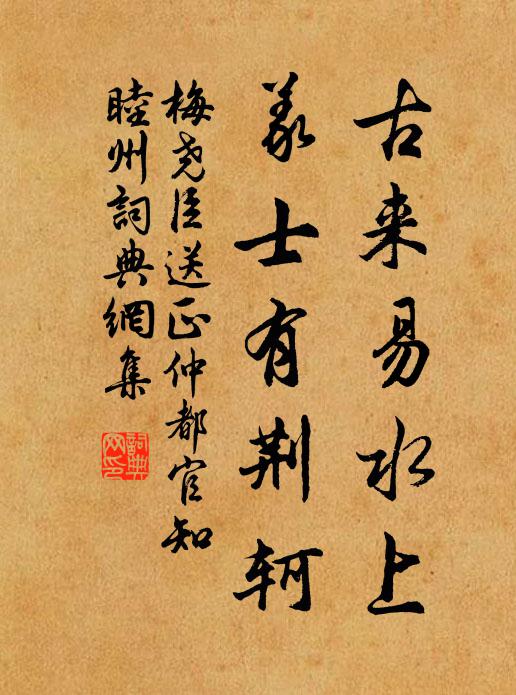 古来易水上
義士有荆轲
梅尧臣送正仲都官知
睦州詞典網集
詞典網印